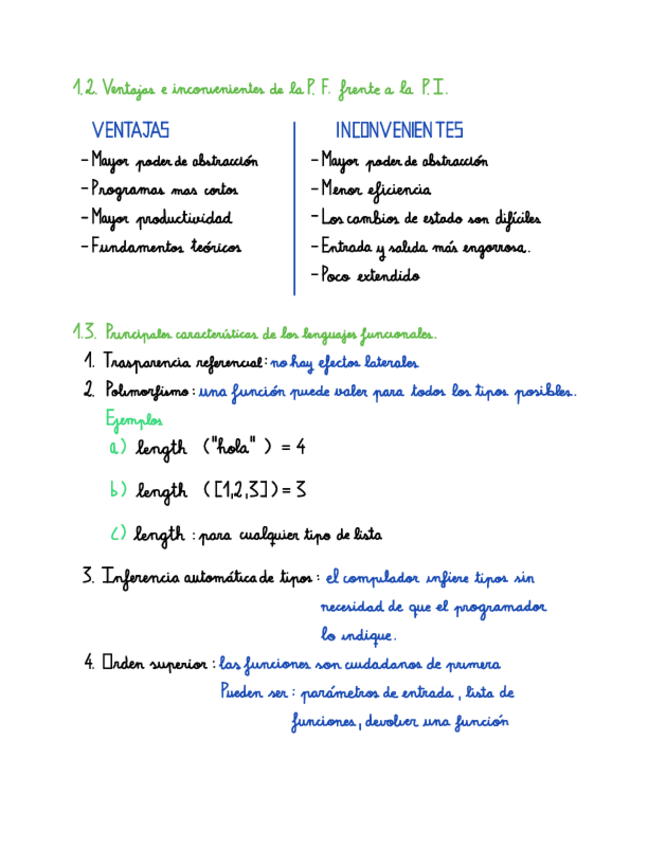 1.2. Ventajas e inconvenientes de la P. F. frente a la P.I.
VENTAJAS
- Mayor poder de abstracción
- Programas mas cortos
- Mayor productividad
- Fundamentos teóricos
INCONVENIENTES
- Mayor poder de abstracción
- Menor eficiencia
- Los cambios de estado son difíciles
- Entrada y salida más engorrosa.
- Poco extendido
1.3. Principales características de los lenguajes funcionales.
1. Trasparencia referencial: no hay efectos laterales
2. Polimorfismo: una función puede valer para todos los tipos posibles.
Ejemplos
a) length ("hola") = 4
b) length ([1,2,3]) = 3
c) length : para cualquier tipo de lista
3. Inferencia automática de tipos : el compilador infiere tipos sin
necesidad de que el programador
lo indique.
4. Orden superior : las funciones son ciudadanos de primera
Pueden ser : parámetros de entrada, lista de
funciones, devolver una función